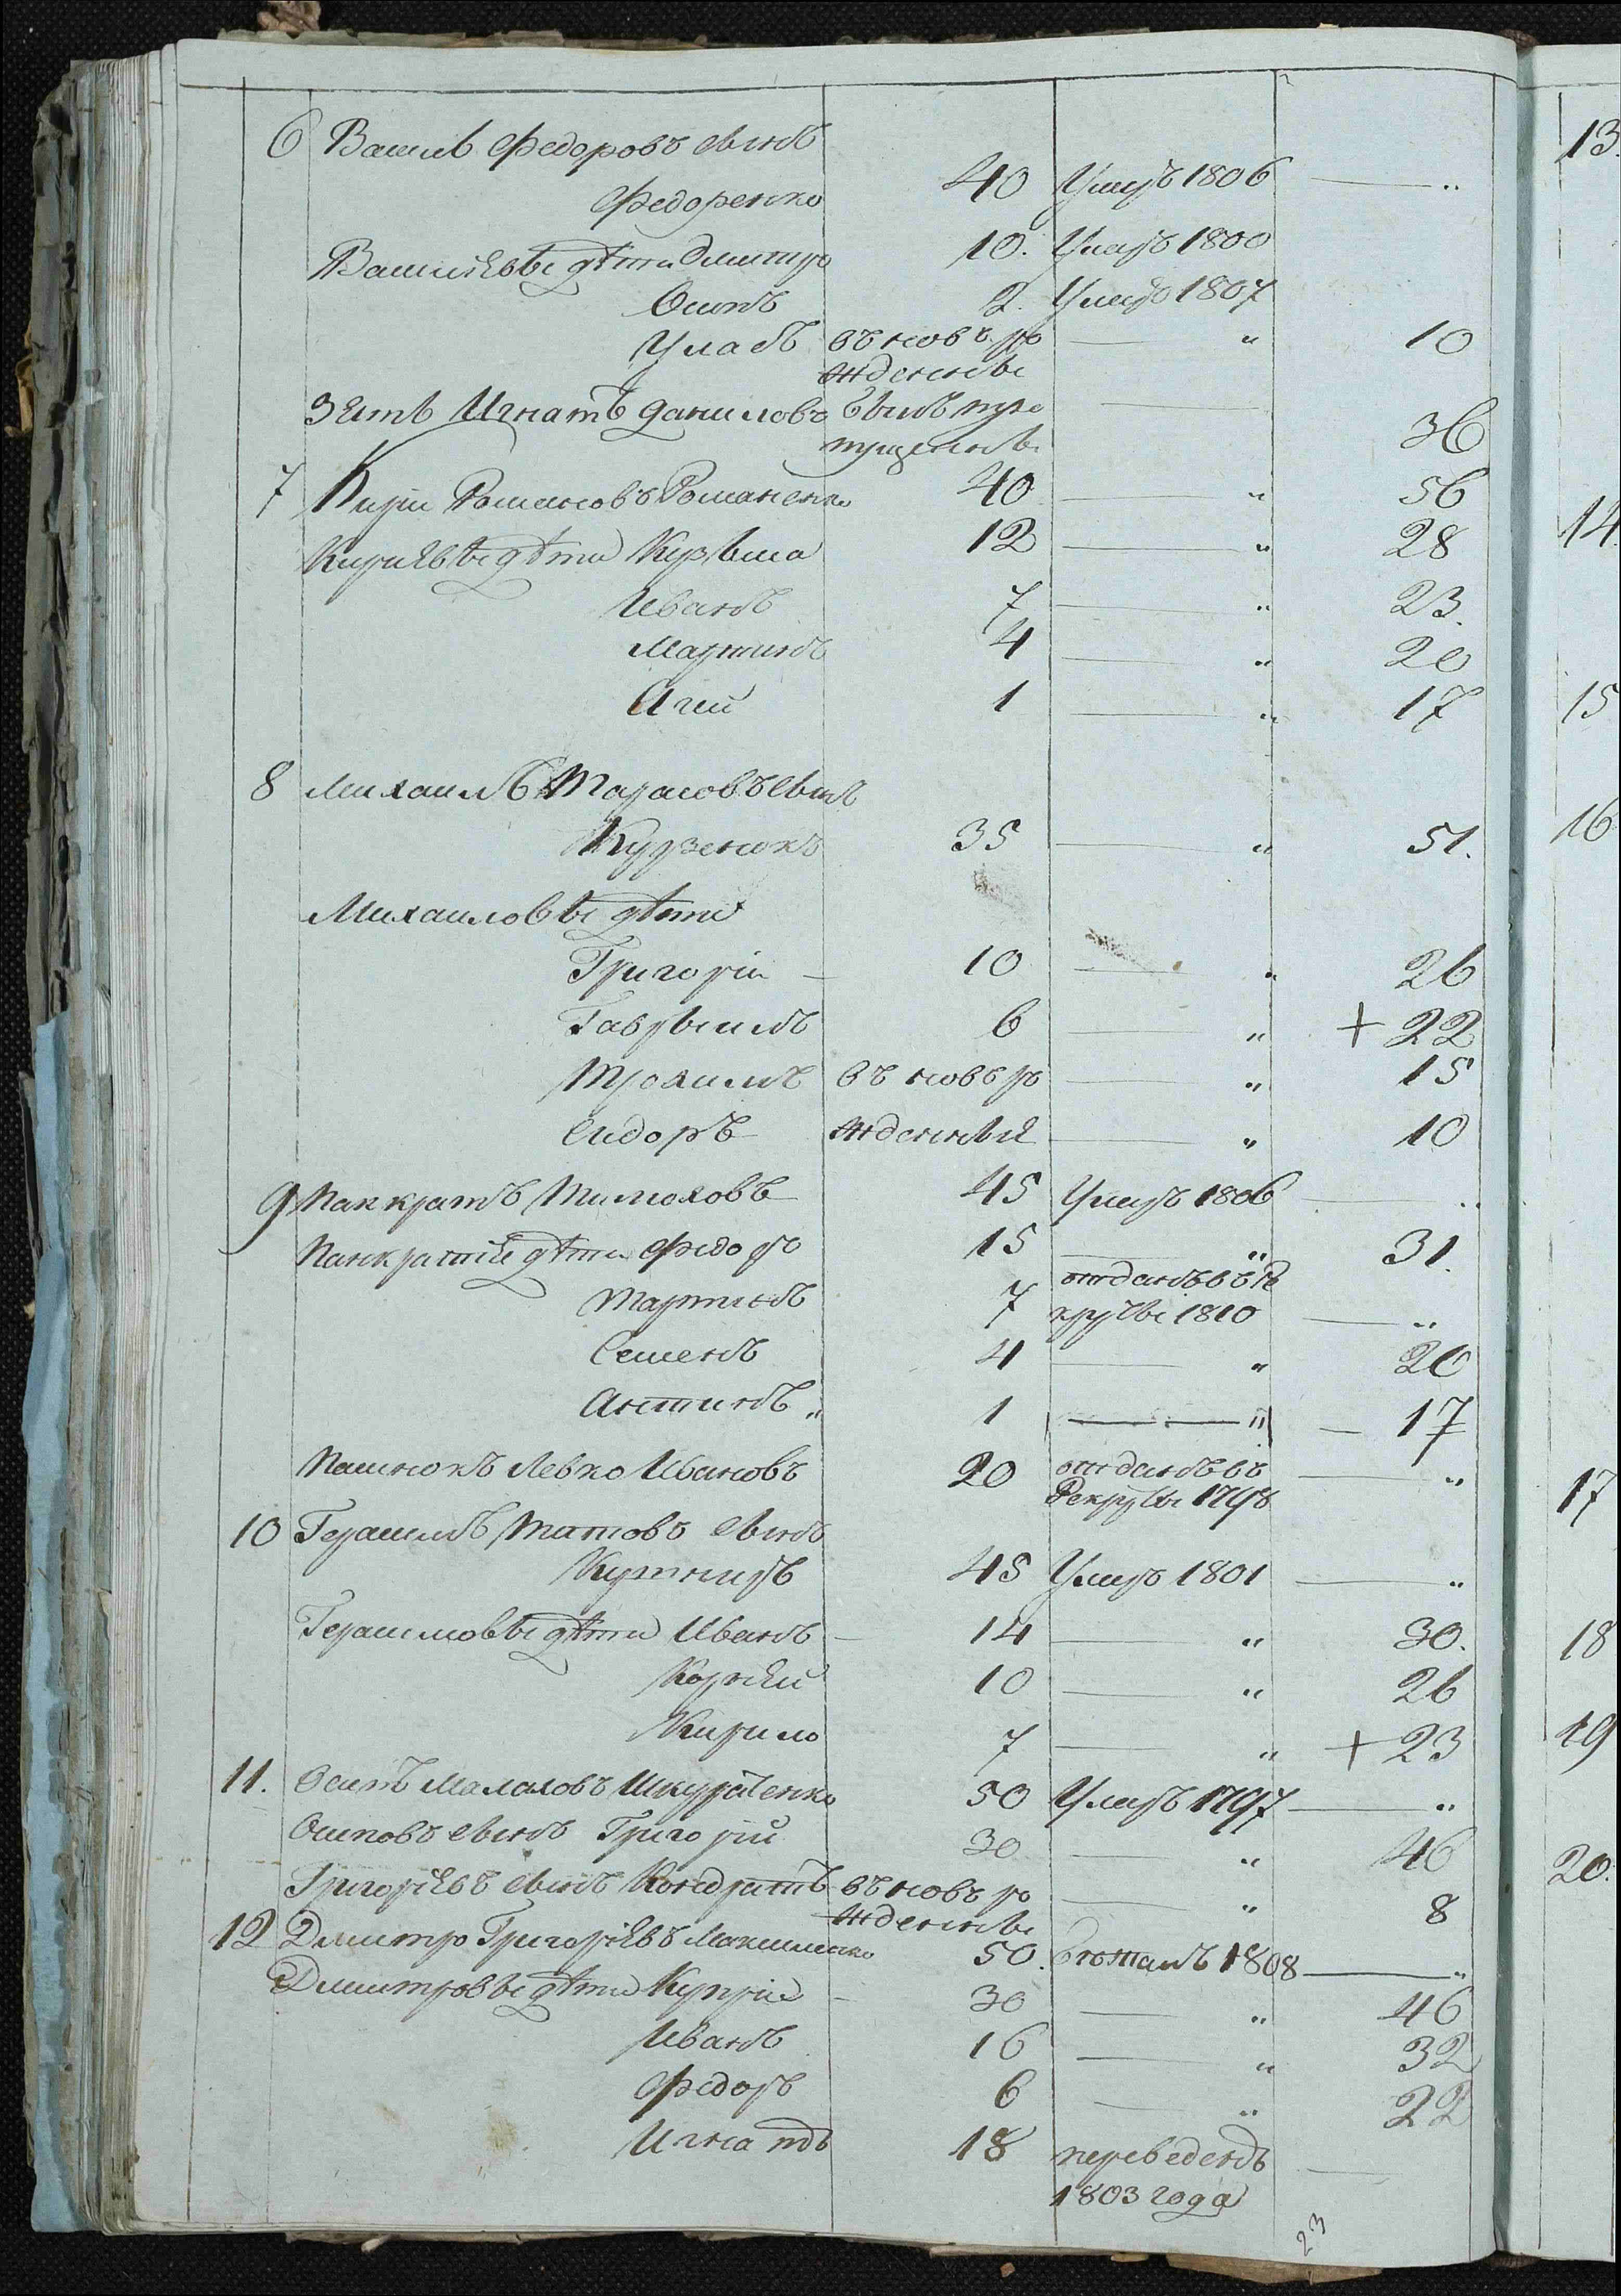 6 Василь Федоровъ сынъ
Федоренко 40 Умеръ 1806 — "
Васильевы дѣти Дмитро 10. Умеръ 1800
Осипъ 2. Умеръ 1807
Уласъ въ новъ ро — " 10
жденны
Зять Игнатъ Даниловъ былъ про —
пущенны 36
7 Кири Романовъ Романенко 40 — " 56
Кириевы дѣти Кузьма 12 — " 28
Иванъ 7 — " 23.
Мартинъ 4 — " 20
Агей 1 — " 17
8 Михаилъ Тарасовъ сынъ
Курзенокъ 35 — " 51.
Михаиловы дѣти
Григорій — 10 — " 26
Гаврыилъ 6 — " + 22
Трохимъ въ новъ ро — " 15
Сидоръ жденныя — " 10
9 Панкратъ Тимоховъ 45 Умеръ 1806 — "
Панкратіе дѣти Федоръ 15 — " 31.
отданъ въ Ре
Мартинъ 7 круты 1810 — "
Семенъ 4 — " 20
Антинъ " 1 — " — 17
Пасинокъ Левко Ивановъ 20 отданъ въ — "
Рекруты 1798
10 Герасимъ Титовъ сынъ
Кутниръ 45 Умеръ 1801 — "
Герасимовы дѣти Иванъ — 14 — " 30.
Корнѣй 10 — " 26
Кирило 7 — " + 23
11. Осипъ Малаховъ Шкуратенко 50 Умеръ 1797 — "
Осиповъ сынъ Григорій 30 — " 46
Григорьевъ сынъ Кондратъ въ новъ ро — " 8
жденны
12 Дмитро Григорьевъ Максименко 50. бежалъ 1808 — "
Дмитровы дѣти Купріи — 30 — " 46
Иванъ 16 — " 32
Федоръ 6 — " 22
Игнатъ 18 переведенъ —
1803 года
23
13.
14.
15
16
17
18
19
20.